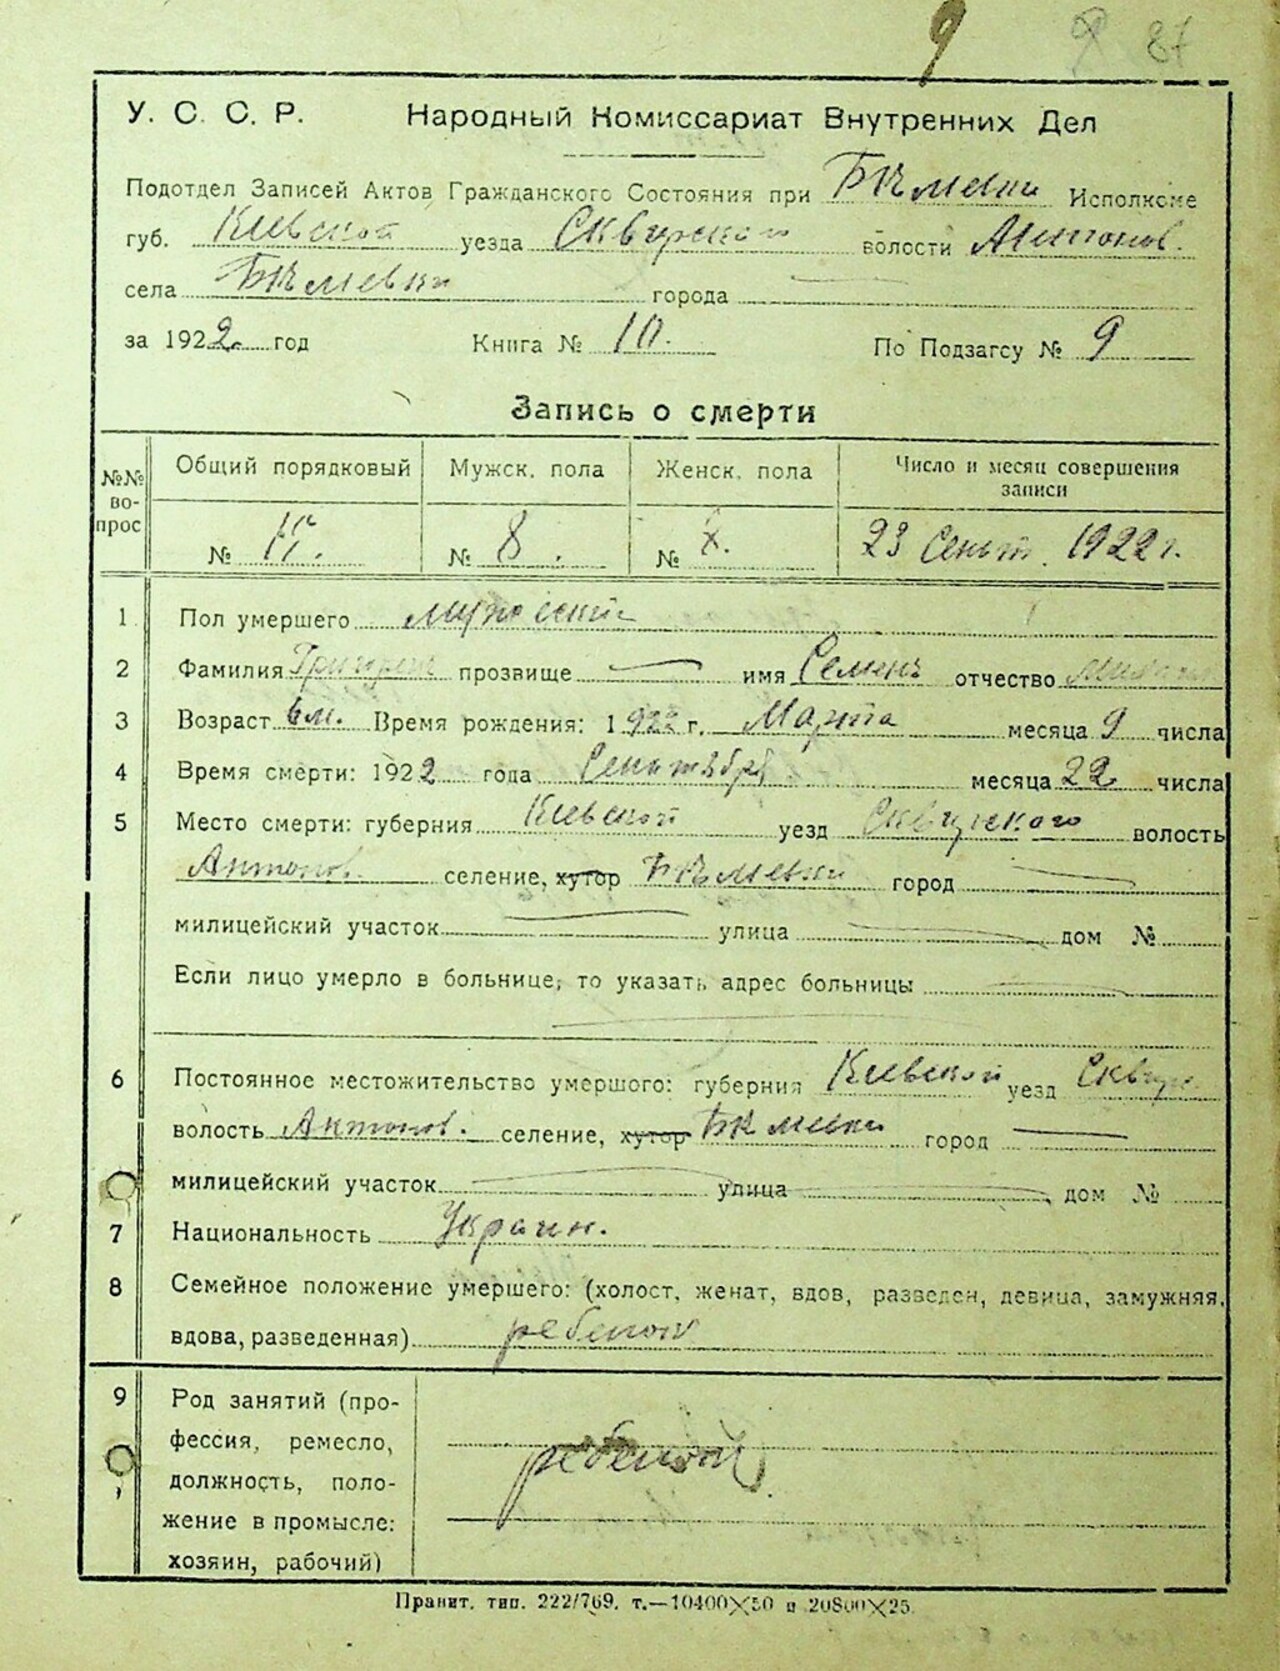 9 87
У. С. С. Р. Народный Комиссариат Внутренних Дел
Подотдел Записей Актов Гражданского Состояния при Исполкоме
губ. Киевской уезда Сквирского волости Антонов.
села города
за 1922 год Книга № 10. По Подзагсу № 9
Запись о смерти
№№ вопрос Общий порядковый Мужск. пола Женск. пола Число и месяц совершения записи
№ № 8. № 23 Сент. 1922 г.
1 Пол умершего мужеский
2 Фамилия прозвище — имя Семенъ отчество
3 Возраст 6 м. Время рождения: 1922 г. Марта месяца 9 числа
4 Время смерти: 1922 года Сентября месяца 22 числа
5 Место смерти: губерния Киевской уезд Сквирского волость
Антонов. селение, хутор город —
милицейский участок — улица — дом №
Если лицо умерло в больнице, то указать адрес больницы —
6 Постоянное местожительство умершого: губерния Киевской уезд Сквир.
волость Антонов. селение, хутор город —
милицейский участок — улица — дом №
7 Национальность Украин.
8 Семейное положение умершего: (холост, женат, вдов, разведен, девица, замужняя,
вдова, разведенная) ребенок
9 Род занятий (про-
фессия, ремесло,
должность, поло-
жение в промысле:
хозяин, рабочий)
ребенок
Правит. тип. 222/769. т.—10400×50 и 20800×25.